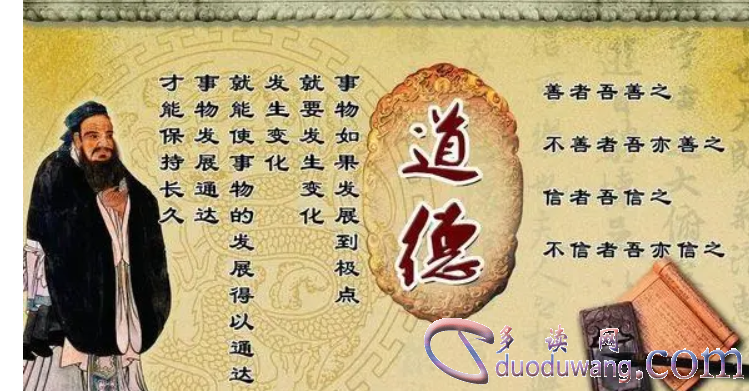 事物如果发展到极点
就要发生变化
发生变化
就能使事物的发展得以通达
事物发展通达
才能保持长久
道德
善者吾善之
不善者吾亦善之
信者吾信之
不信者吾亦信之
多读网
duoduwang.com